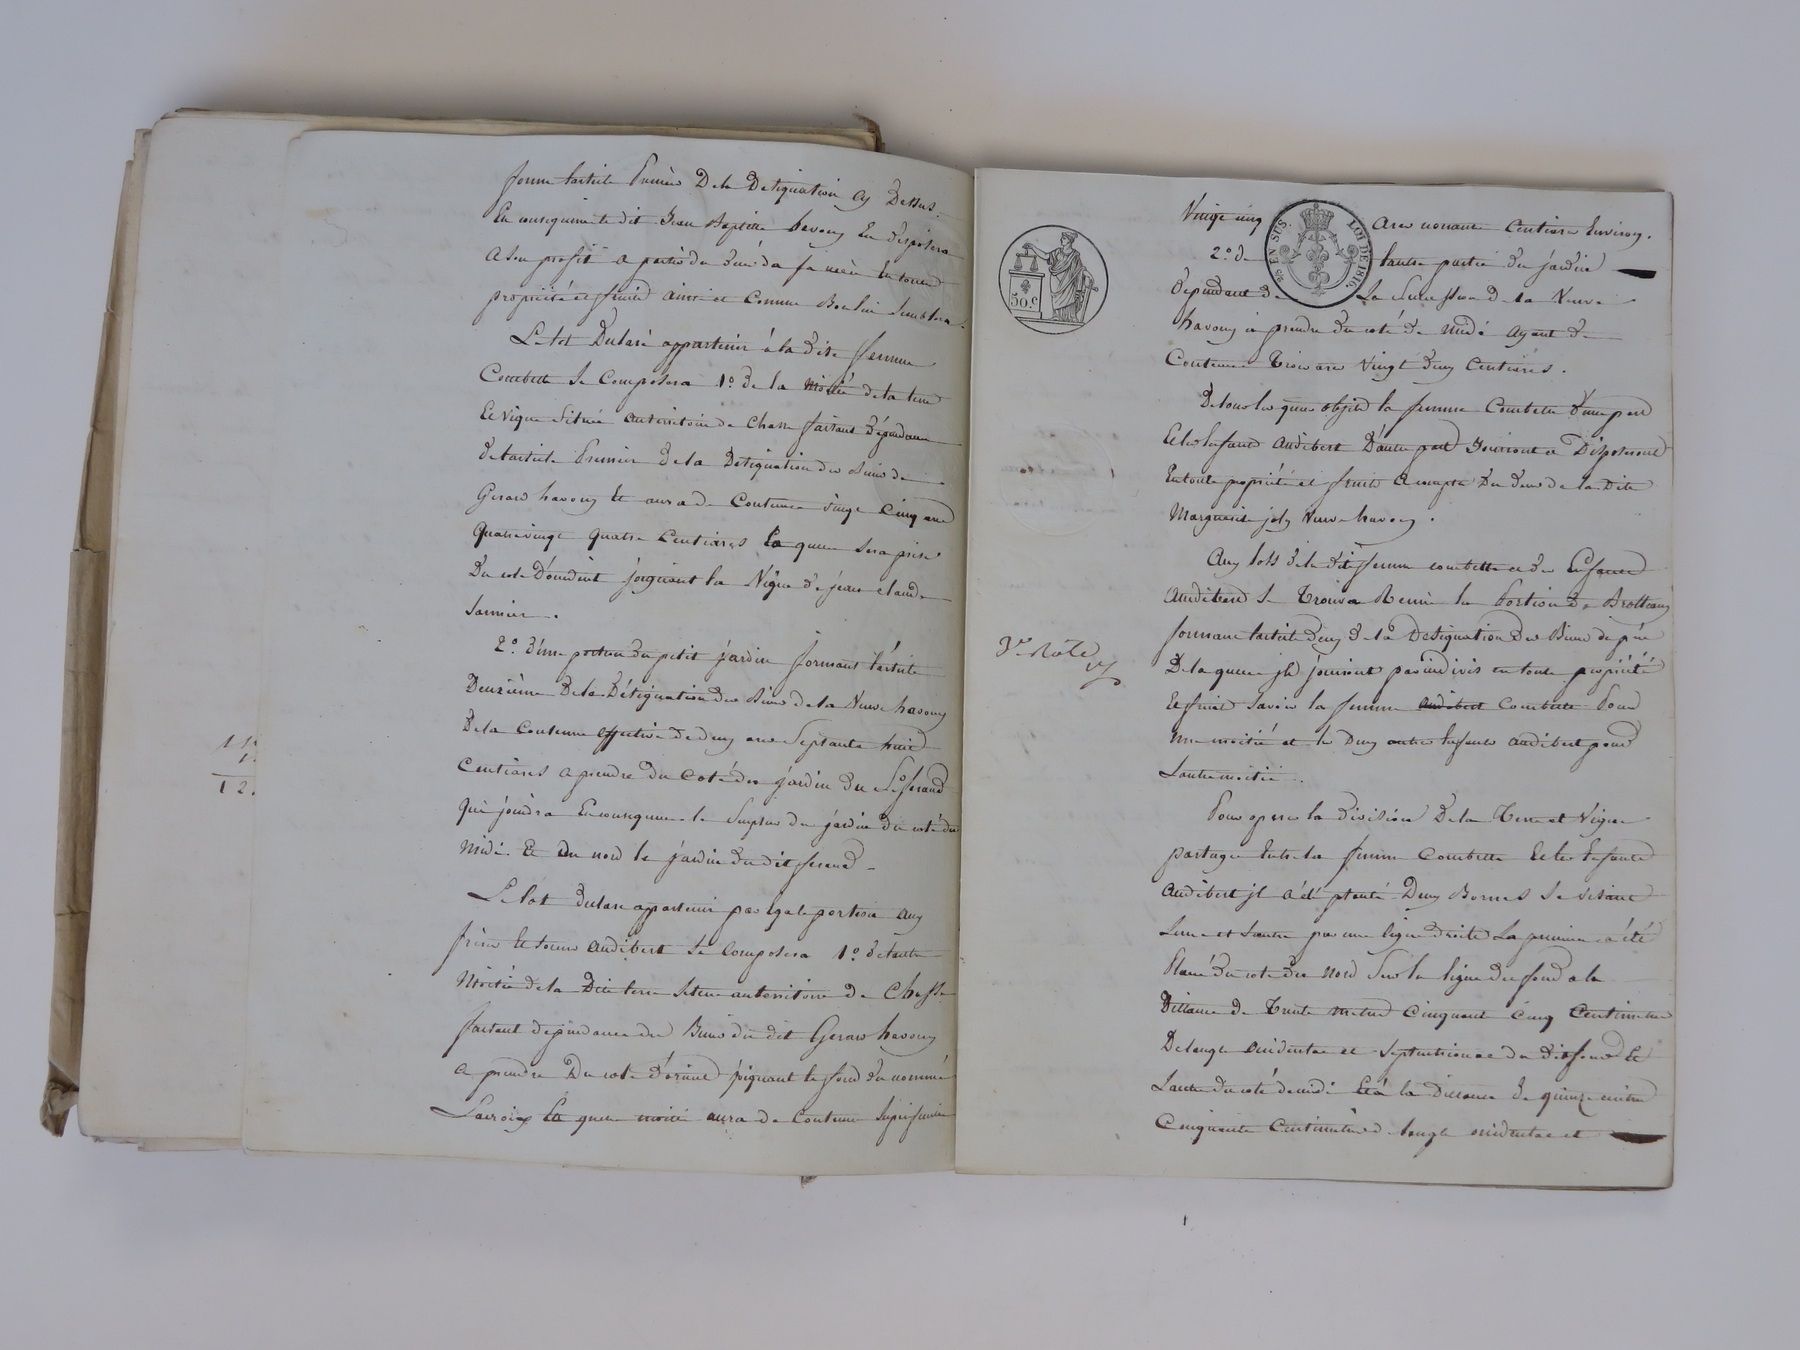 forme l'article Premier De la Désignation cy Dessus.
En conséquence le dit Jean Baptiste havouy En disposera
A son profit a partir du decés de sa mère En toute
propriété et fruits ainsi et comme Bon lui Semblera.
Le lot Déclaré appartenir à la dite femme
Combette Se Composera 1.o de la moitié de la terre
Et vigne Située au territoire de Chasse faisant dépendance
de l'article Premier de la Désignation des Biens de
Geraw havouy Et aura de Contenue vingt Cinq ares
quatre vingt quatre Centiares La quelle Sera prise
Du coté D'occident joignant la Vigne de jean claude
2.o d'une portion du petit jardin formant l'article
Deuxième De la Désignation des Biens de la Veuve havouy
De la Contenue effective de deux ares Septante huit
Centiares a prendre du Coté du jardin du S.r ferand
qui joindra En conséquence le Surplus du jardin du coté du
Midi Et du nord le jardin du dit ferand
Le lot déclaré appartenir par égale portion aux
frère Et soeur audibert Se Composera 1.o de l'autre
Moitié de la Dite terre Située au territoire de Chasse
faisant dépendance des Biens du dit Geraw havouy
a prendre Du coté d'orient joignant le fond du nommé
Lacroix La quelle moitié aura de Contenue Superficielle
11
1
12.
Vingt cinq Ares nonante Centiares Environ.
EN SUS. LOI DE 1816.
2.o de l'autre partie du jardin
dépendant de La Succession de la Veuve
50.c
havouy à prendre du coté de midi ayant de
Contenue Trois ares Vingt deux Centiares.
De tous les quels objets la femme Combette d'une part
Et les Enfants audibert D'autre part Jouiront et Disposeront
En toute propriété et fruits A compter Du decés de la Dite
Marguerite joly Veuve havouy.
Aux lots de la dite femme combette et des Enfants
Audibert Se Trouvera Réunie la Portion de Brotteaux
formant l'article deux de la Désignation des Biens du père
3.e Rôle
De la quelle ils jouiront par indivis en toute propriété
Et fruits Savoir la femme audibert Combette Pour
une moitié et les Deux autres Enfants audibert pour
L'autre moitié.
Pour operer la division De la Terre et Vigne
partagée Entre la femme Combette Et les Enfants
Audibert jl a été planté Deux Bornes Se visant
L'une et L'autre par une ligne droite La première a été
Placée du coté du Nord Sur la ligne du fond a la
Distance de Trente metres Cinquante Cinq Centimetres
De l'angle occidental et Septentrional du dit fond Et
L'autre du coté de midi Et à la Distance de quinze metres
Cinquante Centimètres de l'angle occidental et